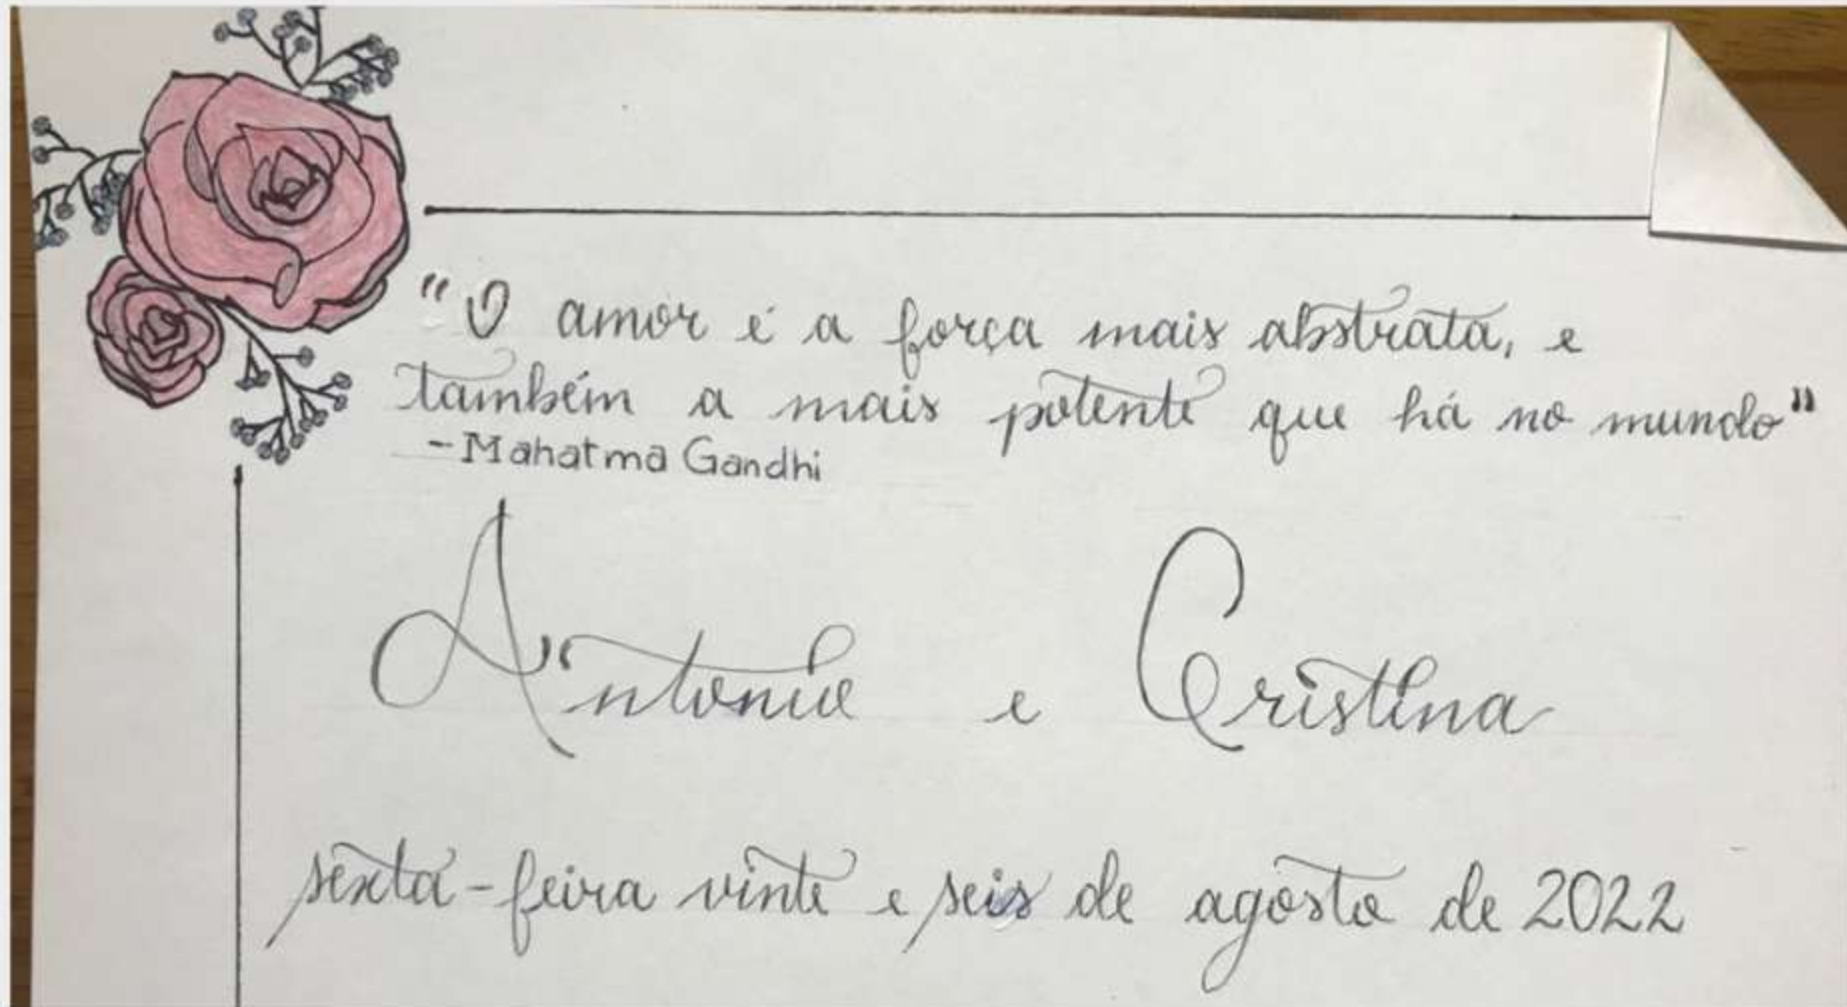 "O amor é a força mais abstrata, e
também a mais potente que há no mundo"
-Mahatma Gandhi
Antonio e Cristina
sexta-feira vinte e seis de agosto de 2022